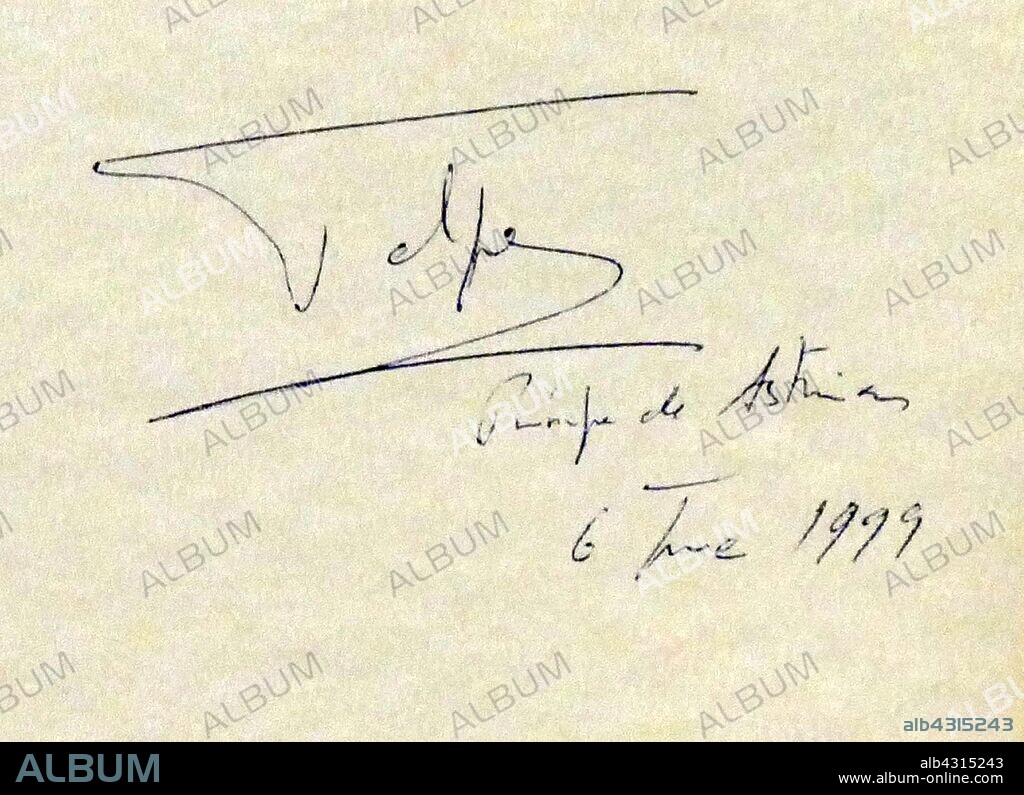 Felipe
Principe de Asturias
6 June 1999
alb4315243
ALBUM
alb4315243
www.album-online.com